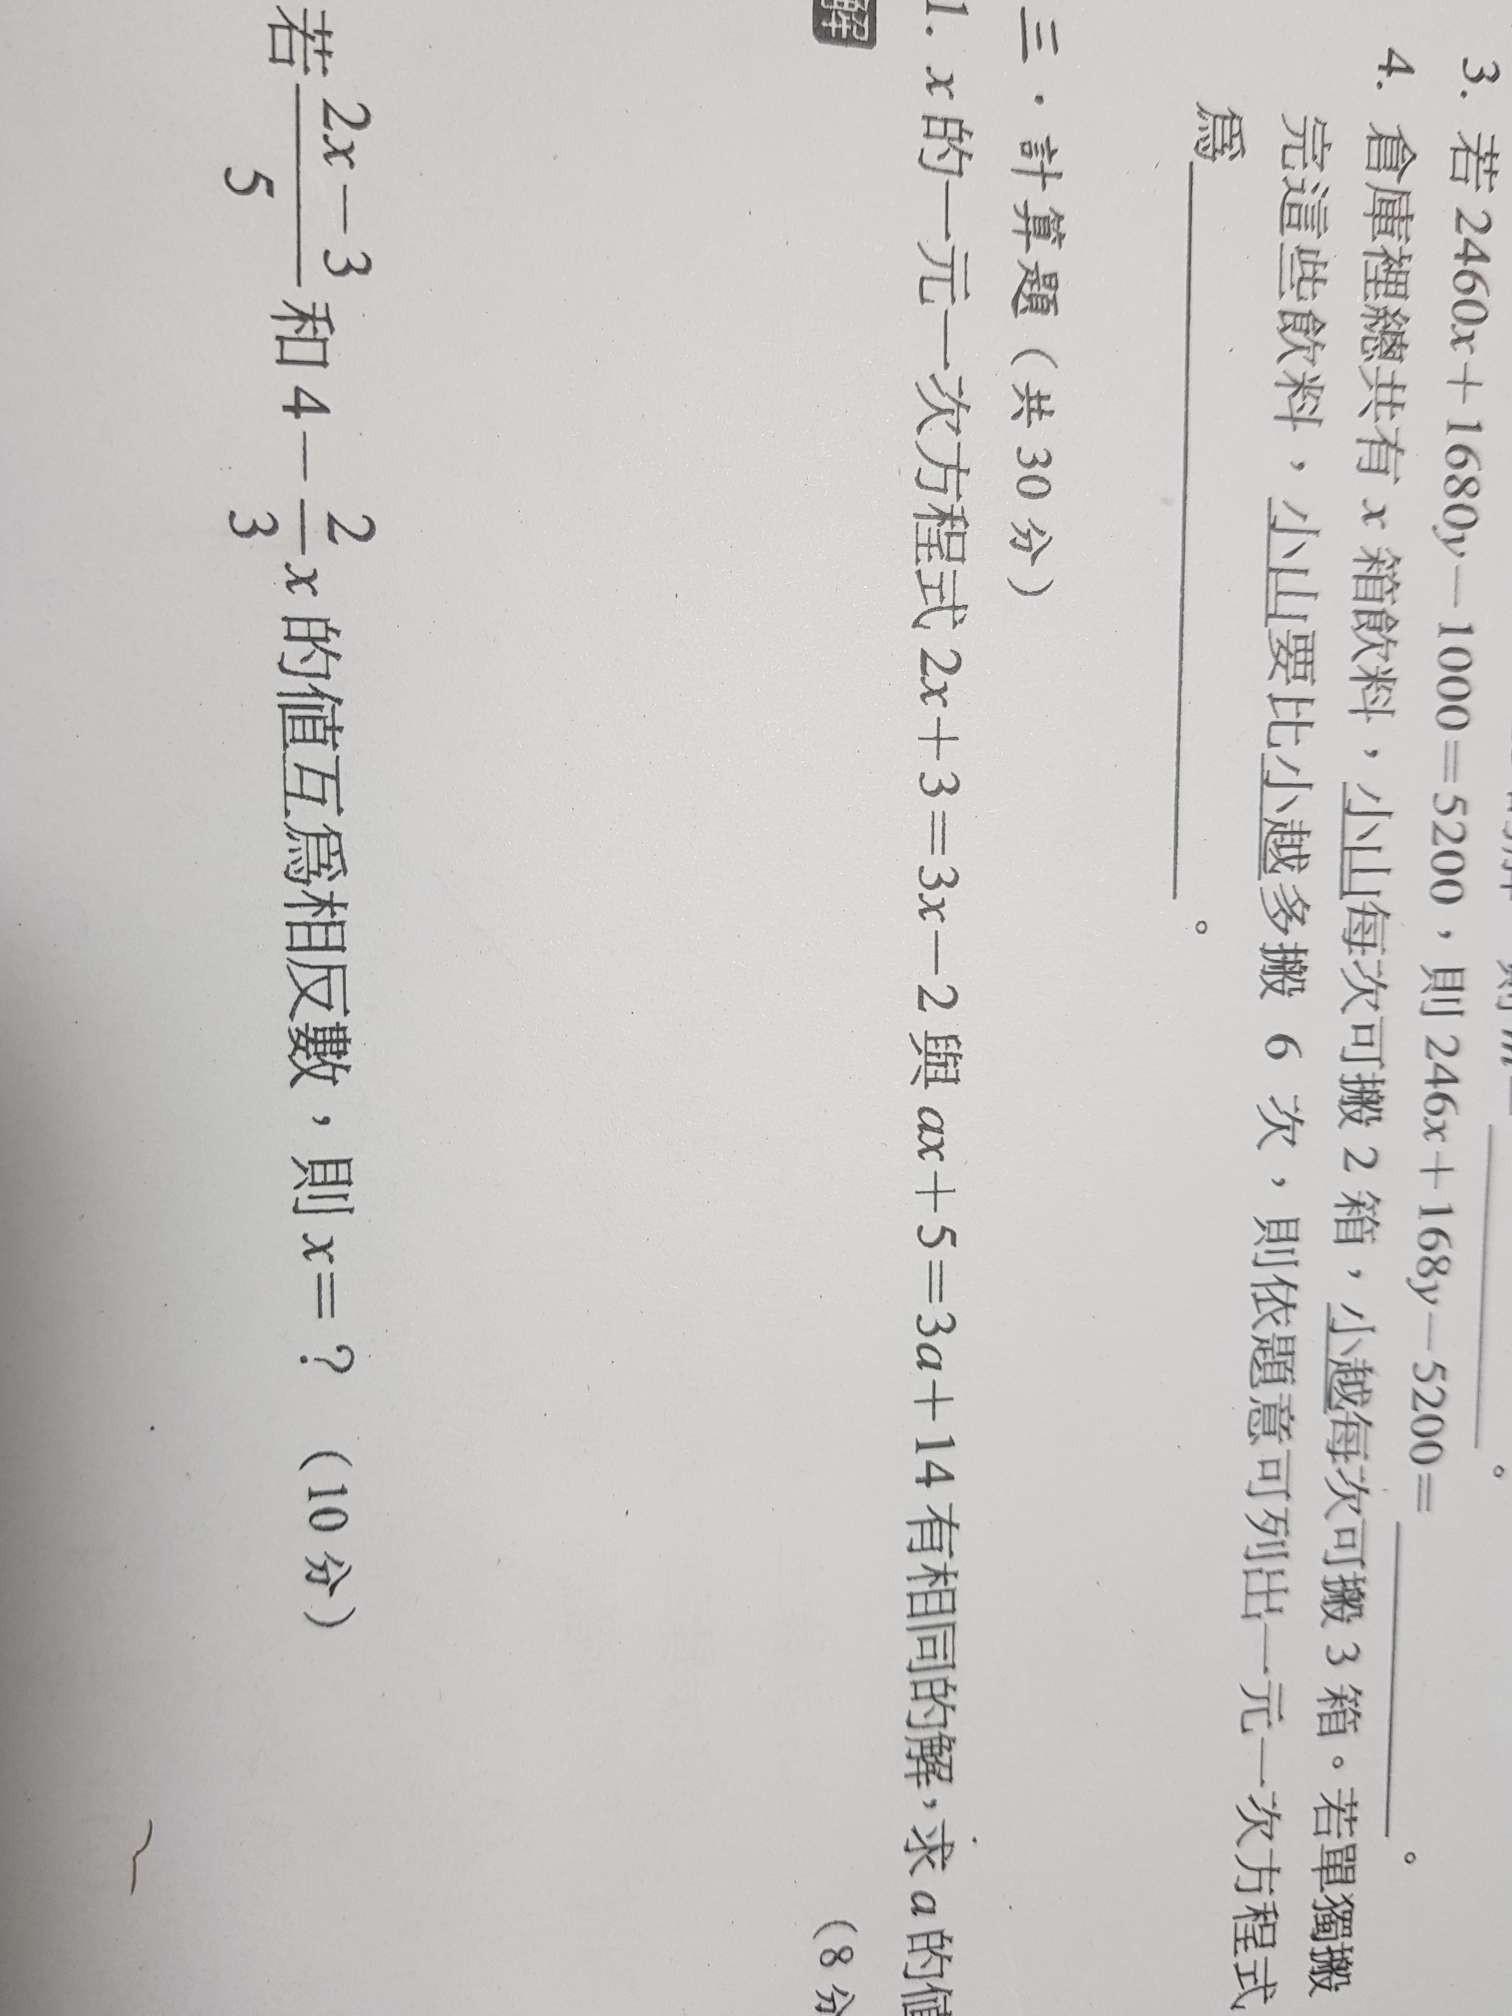 3. 若 2460x＋1680y－1000＝5200，則 246x＋168y－5200＝＿＿＿＿。
4. 倉庫裡總共有 x 箱飲料，小山每次可搬 2 箱，小越每次可搬 3 箱。若單獨搬
完這些飲料，小山要比小越多搬 6 次，則依題意可列出一元一次方程式
為＿＿＿＿。
三．計算題（共 30 分）
1. x 的一元一次方程式 2x＋3＝3x－2 與 ax＋5＝3a＋14 有相同的解，求 a 的值
（8 分
解
若 \frac{2x－3}{5} 和 4－\frac{2}{3}x 的值互為相反數，則 x＝？（10 分）